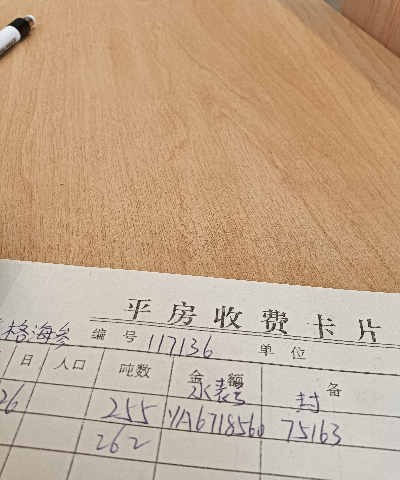 平房收费卡片
格海参 编号 117136 单位
日 人口 吨数 金额 水表号 备 封
26 255 YA6718560 75163
262